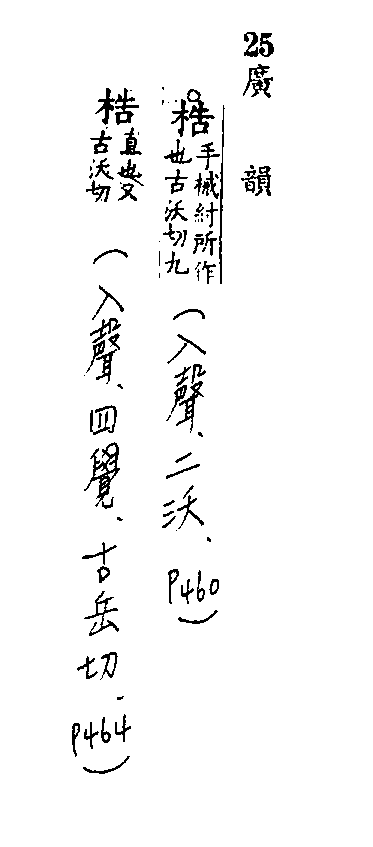 25廣韻
梏手械紂所作也古沃切九(入聲、二沃、P460)
梏直也又古沃切(入聲、四覺、古岳切、P464)